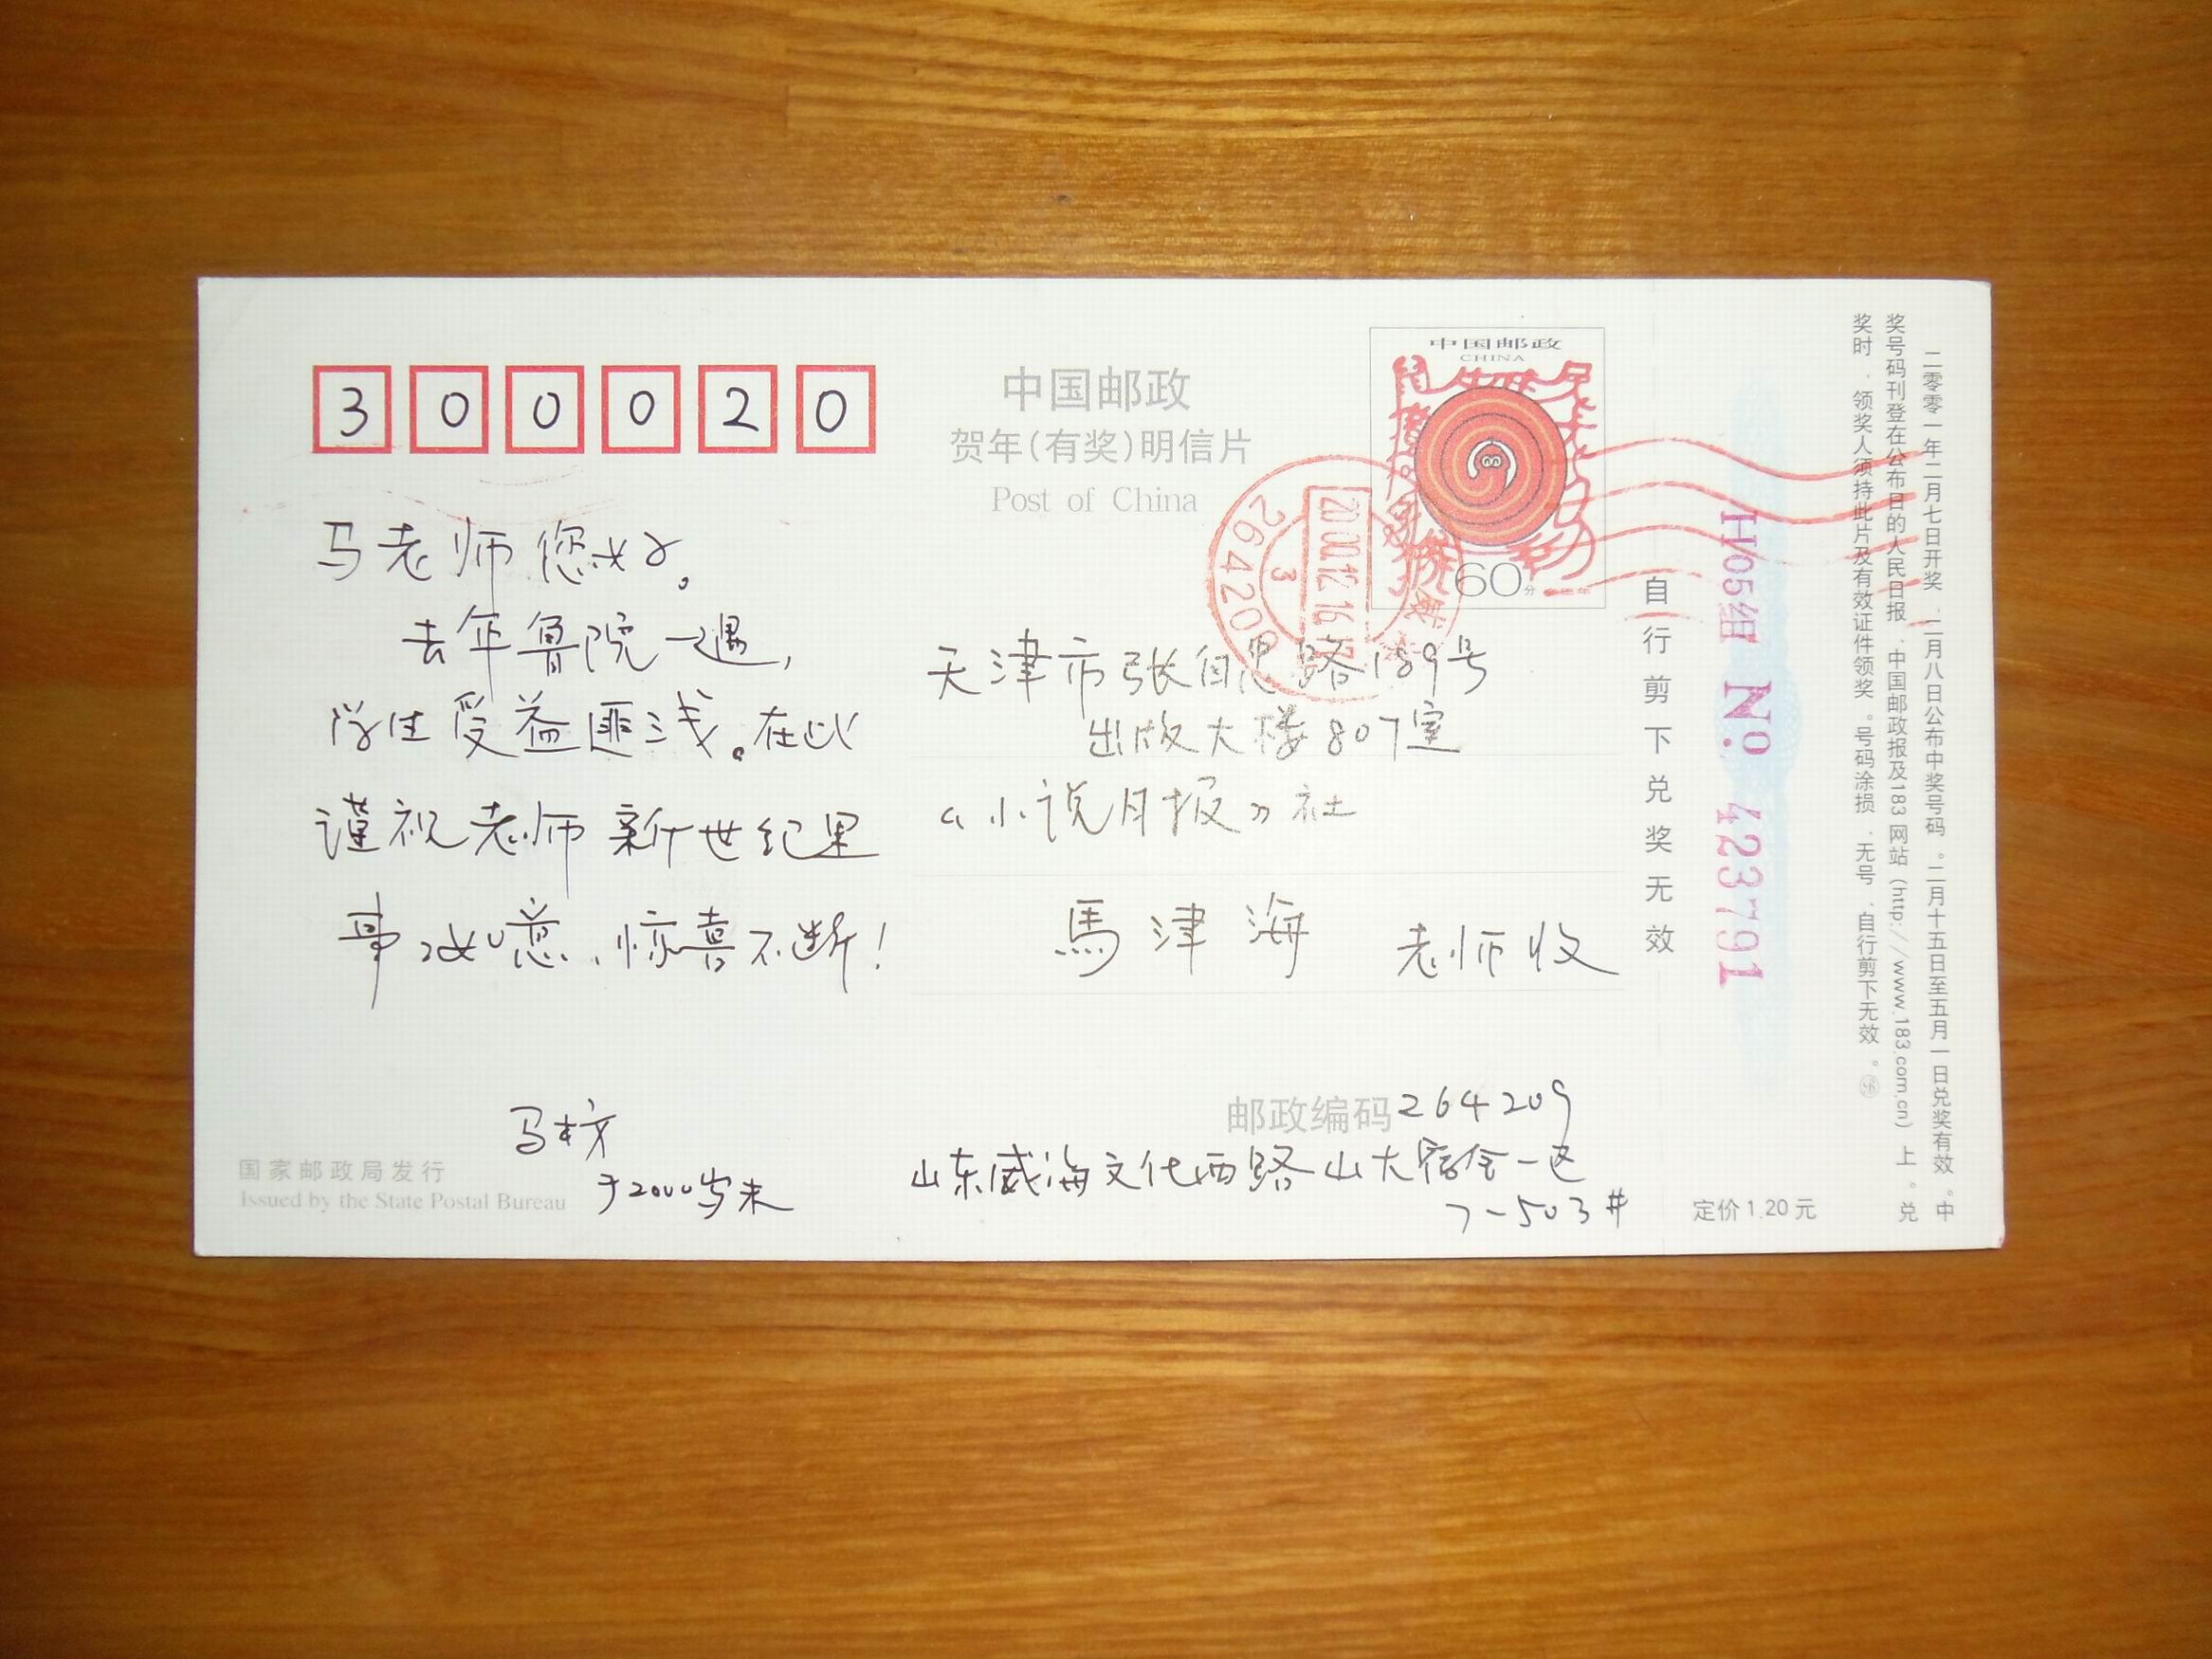 300020
中国邮政
贺年(有奖)明信片
Post of China
中国邮政
CHINA
60分
264209
2000.12.16
3
马老师您好。
去年鲁院一遇,
学生受益匪浅。在此
谨祝老师新世纪里
事事如意、惊喜不断!
于2000岁末
国家邮政局发行
Issued by the State Postal Bureau
天津市张自忠路189号
出版大楼807室
《小说月报》社
馬津海 老师收
邮政编码264209
山东威海文化西路山大宿舍一区
7-503#
自行剪下兑奖无效
H05组 No. 423791
定价1.20元
二零零一年二月七日开奖,二月八日公布中奖号码。二月十五日至五月一日兑奖有效。中
奖号码刊登在公布日的人民日报、中国邮政报及183网站(http://www.183.com.cn)上。兑
奖时,领奖人须持此片及有效证件领奖。号码涂损、无号、自行剪下无效。